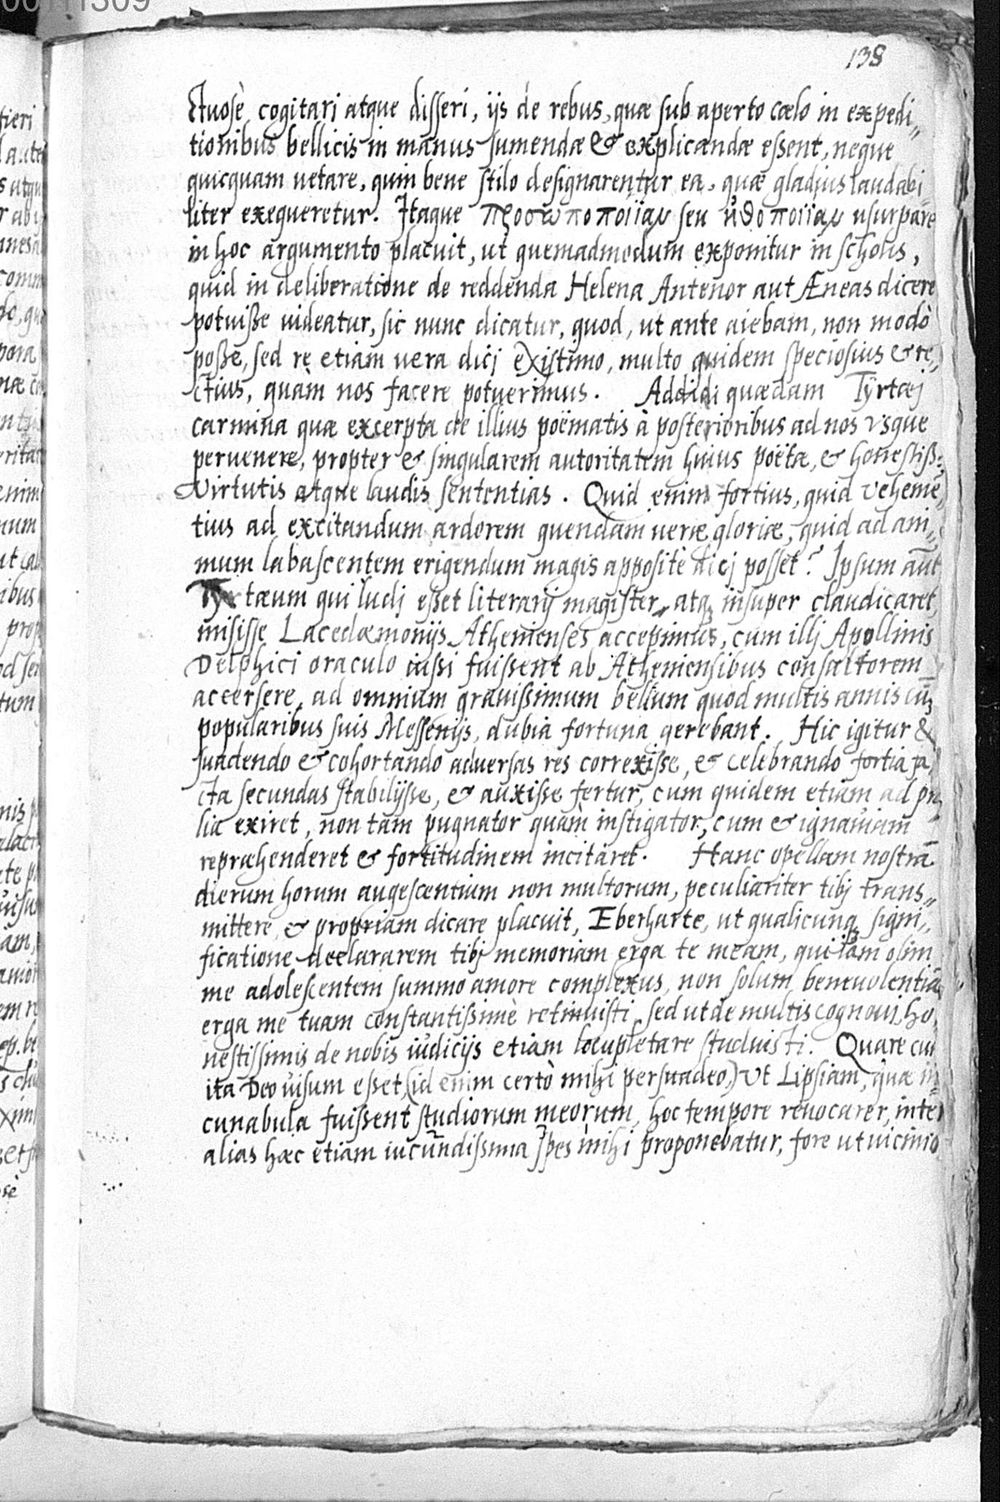 00111309
138
ctuosè cogitari atque disseri, ijs de rebus, quæ sub aperto cælo in expedi„
tionibus bellicis in manus sumendæ & explicandæ essent, neque
quicquam vetare, quin bene stilo designarentur ea, quæ gladius laudabi
liter exequeretur. Itaque προσωποποιίαν seu ἠθοποιίαν usurpare
in hoc argumento placuit, ut quemadmodum exponitur in scholis,
quid in deliberatione de reddenda Helena Antenor aut Æneas dicere
potuisse videatur, sic nunc dicatur, quod, ut ante aiebam, non modò
posse, sed re etiam vera dici existimo, multo quidem speciosius & re„
ctius, quam nos facere potuerimus. Addidi quædam Tyrtæj
carmina quæ excerpta de illius poëmatis à posterioribus ad nos vsque
peruenere, propter & singularem autoritatem huius poëtæ, & honestiss:
virtutis atque laudis sententias. Quid enim fortius, quid veheme̅
tius ad excitandum ardorem quendam veræ gloriæ, quid ad ani„
mum labascentem erigendum magis appositè dici posset? Ipsum aut̅
Tyrtæum qui ludi esset literarij magister, atq; insuper claudicaret,
misisse Lacedæmonijs Athenienses accepimus, cum illi Apollinis
Delphici oraculo iussi fuissent ab Atheniensibus consultorem
accersere, ad omnium grauissimum bellum quod multis annis cu̅
popularibus suis Messenijs, dubia fortuna gerebant. Hic igitur &
suadendo & cohortando aduersas res correxisse, & celebrando fortia fa„
cta secundas stabilijsse, & auxisse fertur, cum quidem etiam ad præ„
lia exiret, non tam pugnator quàm instigator, cum & ignauiam
repræhenderet & fortitudinem incitaret. Hanc opellam nostra̅
dierum horum augescentium non multorum, peculiariter tibi trans„
mittere, & propriam dicare placuit, Eberharte, ut qualicunq; signi„
ficatione declararem tibi memoriam erga te meam, qui iam olim
me adolescentem summo amore complexus, non solum beneuolentia̅
erga me tuam constantissimè retinuisti, sed ut de multis cognoui, ho„
nestissimis de nobis iudicijs etiam locupletare studuisti. Quare cum
ita Deo visum esset, (id enim certò mihi persuadeo,) vt Lipsiam, quæ in„
cunabula fuissent studiorum meorum, hoc tempore reuocarer, inter
alias hæc etiam iucundissima spes mihi proponebatur, fore ut vicinio